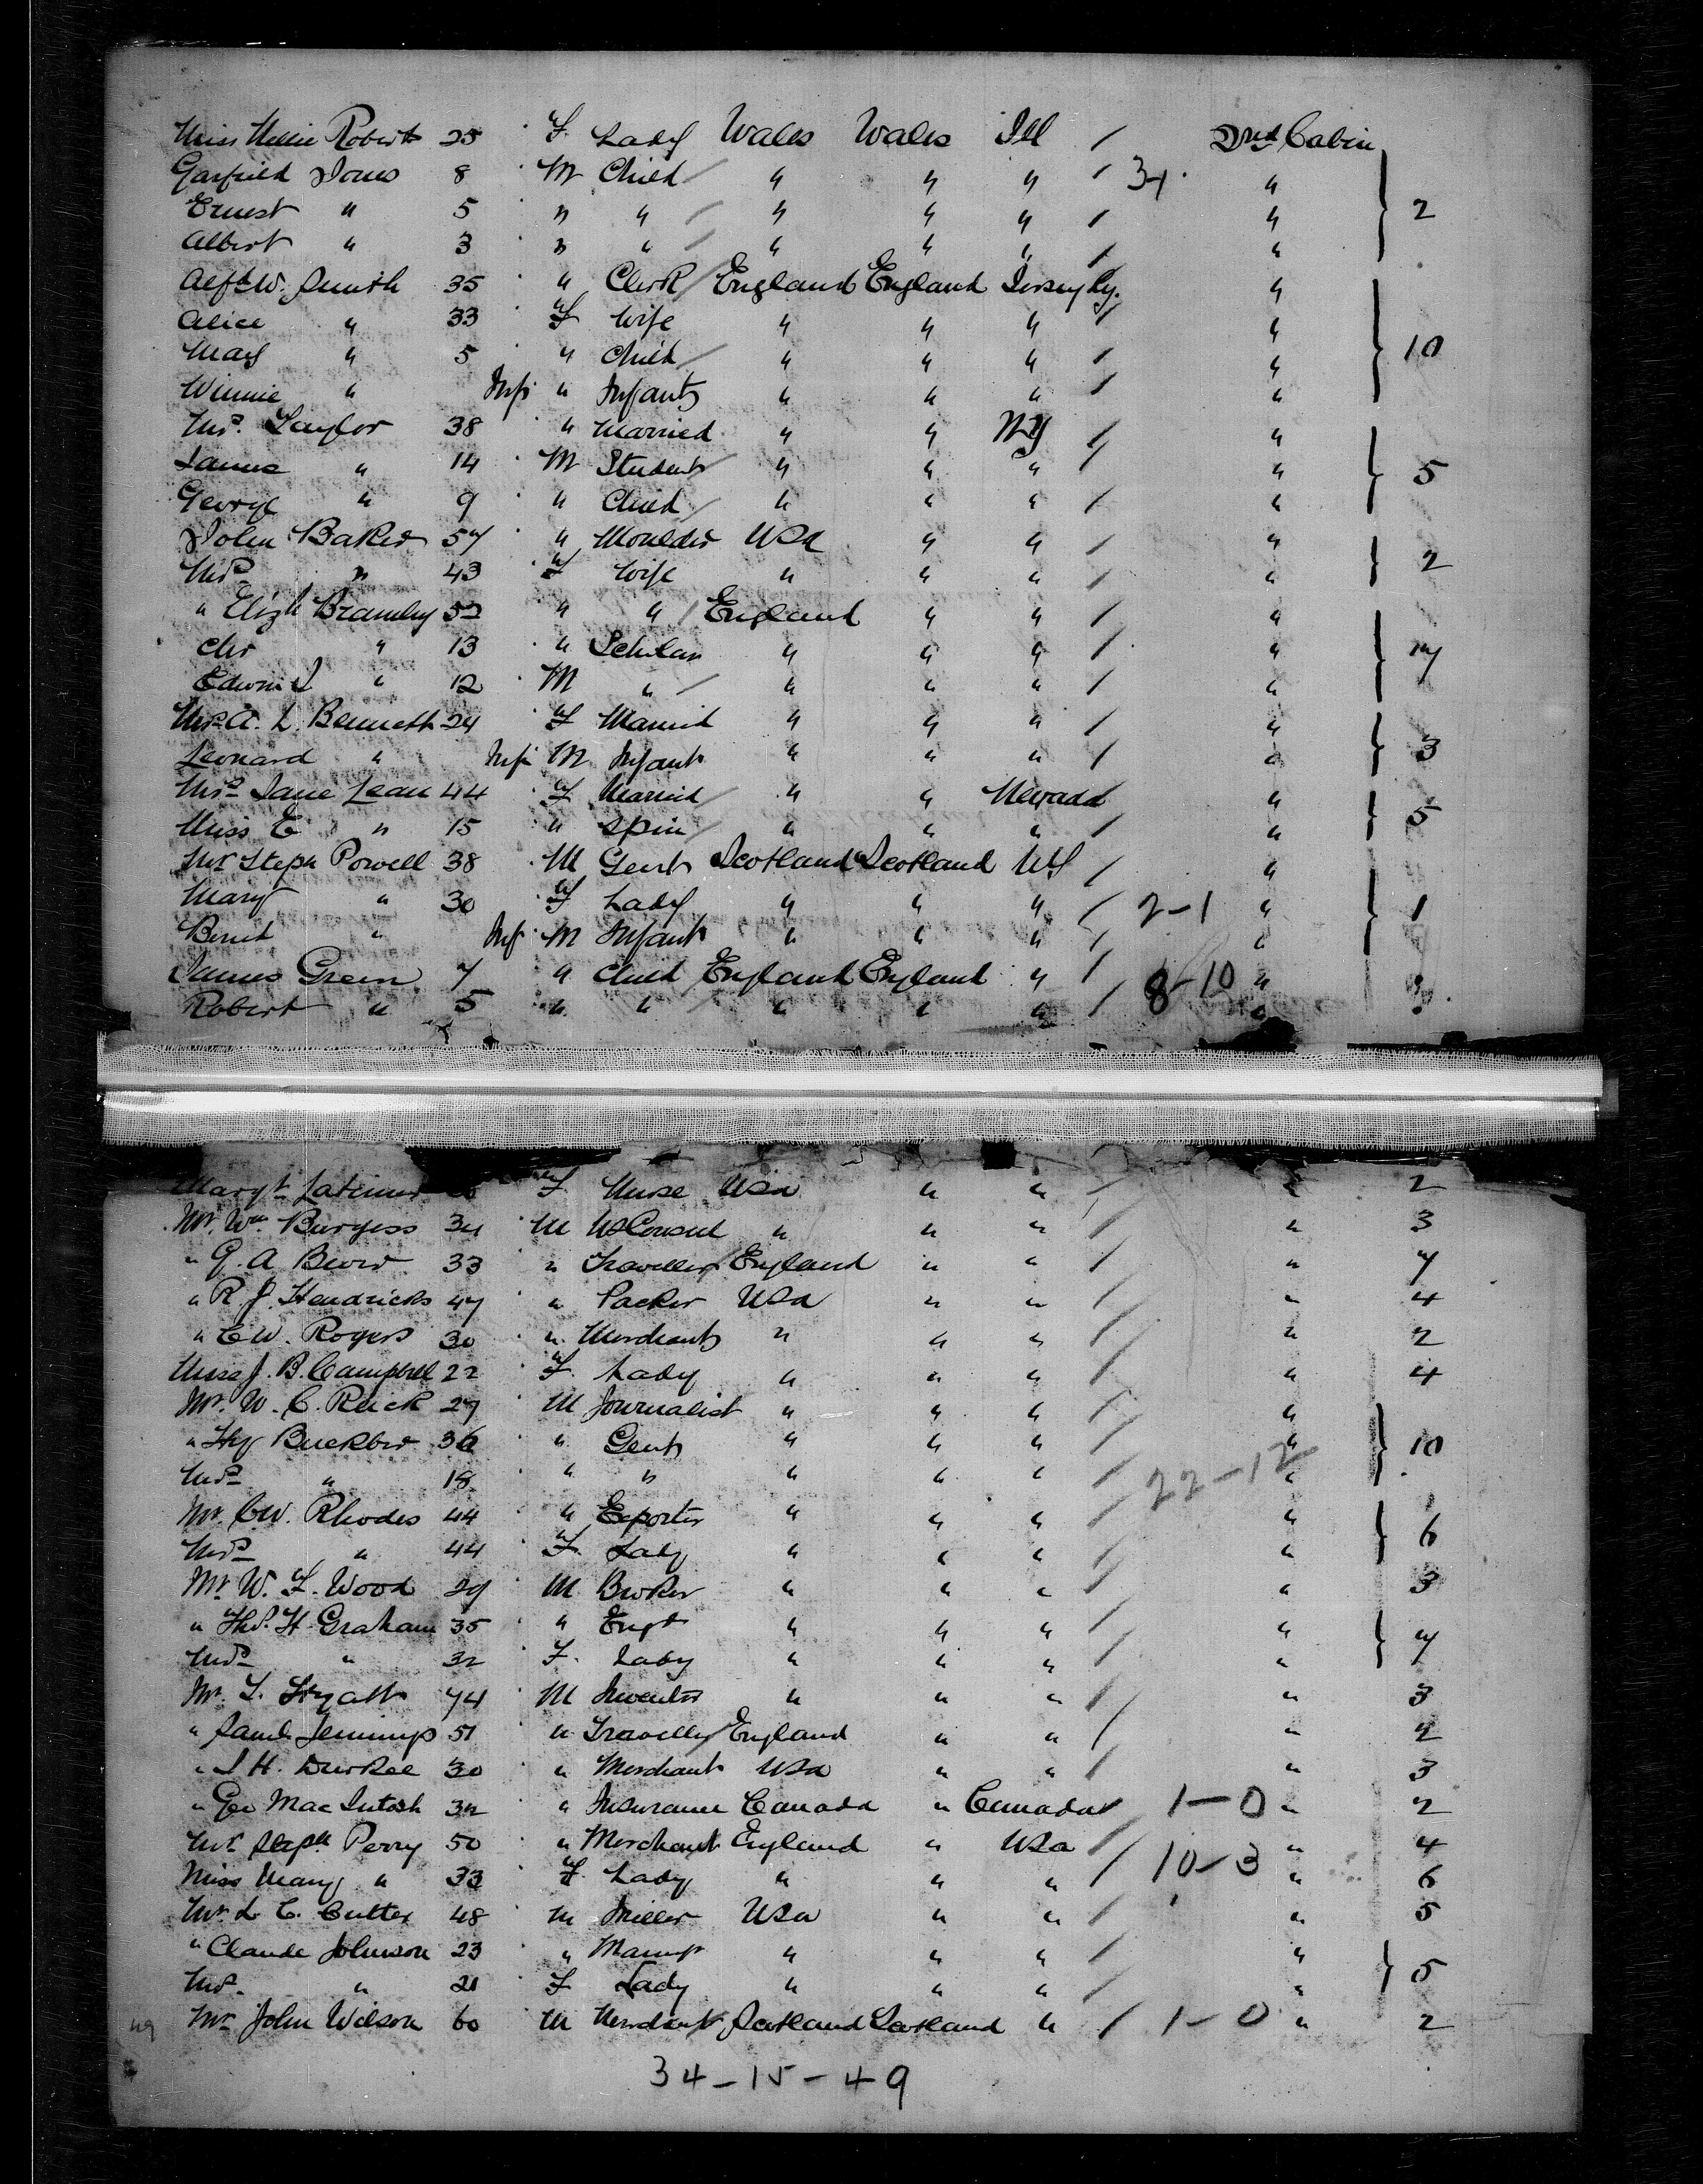 Miss Nellie Roberts 25 F. Lady Wales Wales Ill / 2nd Cabin
Garfield Jones 8 M Child / " " " / 3-1 "
Ernest " 5 " " / " " " / " } 2
Albert " 3 " " / " " " / "
Alfd W. Smith 35 " Clerk / England England Jersey Cy. "
Alice " 33 F Wife " " " / "
Mary " 5 " Child / " " " / " } 10
Winnie " Inft " Infant " " " / "
Mrs. Taylor 38 " Married " " NY / "
James " 14 M Student " " " / " } 5
George " 9 " Child / " " " / "
John Baker 57 " Moulder USA " " / "
Mrs " 43 F Wife " " " / " } 2
" Elizh Bramley 52 " " / England " " / "
" 13 " Scholar " " " / " } 7
Edwin J " 12 M " / " " " / "
Mrs A. L. Bennett 24 F Married " " " / "
Leonard " Inft M Infant " " " / " } 3
Mrs Jane Lean 44 F Married / " " Nevada "
Miss E " 15 " Spin / " " " / " } 5
Mr Steph Powell 38 M Gent Scotland Scotland NY / "
Mary " 30 F Lady " " " / 2-1 " } 1
" Inf M Infant " " " / "
James Green 7 " Child / England England " / 8-10 "
Robert " 5 " " / " " " / "
Margt Latimer F Nurse USA " " / " 2
Mr. Wm Burgess 34 M US Consul " " " / " 3
" G. A 33 " Traveller / England " " / " 7
" R J. Hendricks 47 " Packer USA " " / " 4
" C W. Rogers 30 " Merchant " " " / " 2
Miss J. B. Campbell 22 F. Lady " " " / " 4
Mr. W. C. Reick 27 M Journalist " " " / "
" Hy Buckber 36 " Gent " " " / " } 10
Mrs " 18 " " " " " / 22-12 "
Mr. C W. Rhodes 44 " Exporter " " " / "
Mrs " 44 F. Lady " " " / " } 6
Mr. W. F. Wood 29 M Broker " " " / " 3
" Thos. H. Graham 35 " Engr " " " / " } 7
Mrs " 32 F. Lady " " " / "
Mr. T. Hyatt 74 M Inventor " " " / " 3
" Saml Jennings 51 " Traveller / England " " / " 2
" J H. Durkee 30 " Merchant USA " " / " 3
" Geo MacIntosh 32 " Insurance Canada " Canada / 1-0 " 2
Mr Steph Perry 50 " Merchant England " USA / 10-3 " 4
Miss Mary " 33 F. Lady " " " / " 6
Mr. L. C. Cutter 48 M Miller USA " " / " 5
" Claude Johnson 23 " " " " / " } 5
Mrs. " 21 F Lady " " " / "
49 Mr John Wilson 60 M Merchant / Scotland Scotland " / 1-0 " 2
34-15-49